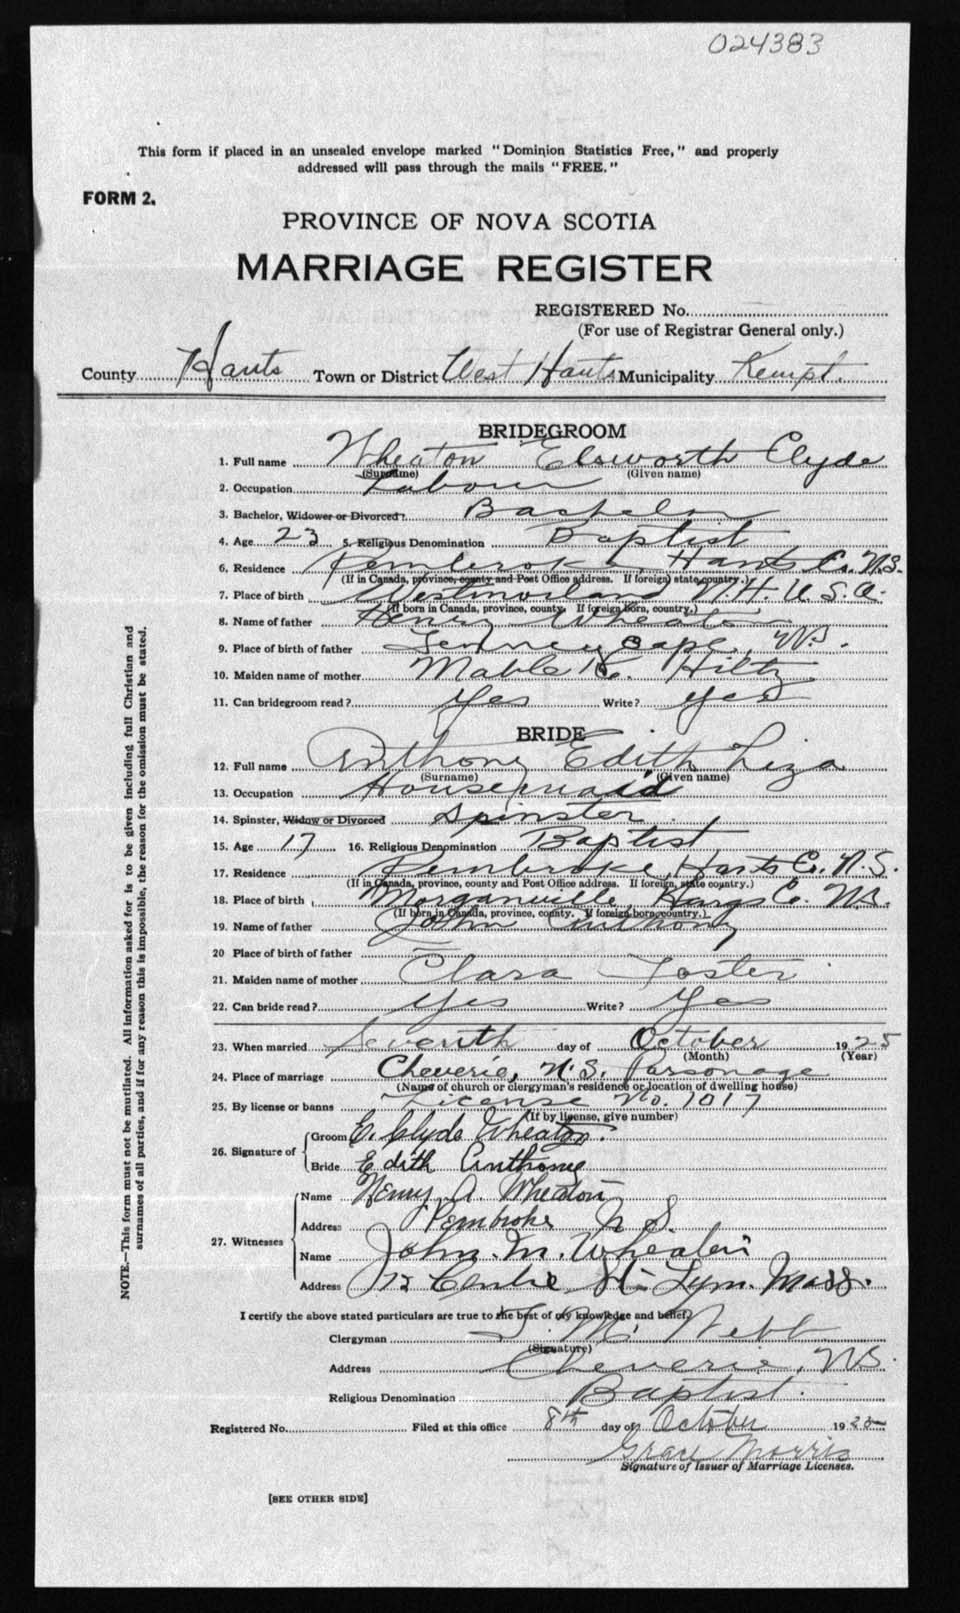 024383
This form if placed in an unsealed envelope marked "Dominion Statistics Free," and properly
addressed will pass through the mails "FREE."
FORM 2.
PROVINCE OF NOVA SCOTIA
MARRIAGE REGISTER
REGISTERED No.
(For use of Registrar General only.)
County Hants Town or District West Hants Municipality Kempt.
BRIDEGROOM
1. Full name Wheaton Elsworth Clyde
(Surname) (Given name)
2. Occupation Labour
3. Bachelor, Widower or Divorced? Bachelor
4. Age 23 5. Religious Denomination Baptist
6. Residence Pembroke, Hants Co. N.S.
(If in Canada, province, county and Post Office address. If foreign, state country.)
7. Place of birth Westmorland N.H. U.S.A.
(If born in Canada, province, county. If foreign born, country.)
8. Name of father Henry Wheaton
9. Place of birth of father Tenney Cape, N.S.
10. Maiden name of mother Mable Hiltz
11. Can bridegroom read? Yes Write? Yes
BRIDE
12. Full name Anthony Edith Liza
(Surname) (Given name)
13. Occupation Housemaid
14. Spinster, Widow or Divorced Spinster
15. Age 17 16. Religious Denomination Baptist
17. Residence Pembroke, Hants Co. N.S.
(If in Canada, province, county and Post Office address. If foreign, state country.)
18. Place of birth Morganville, Co. N.S.
(If born in Canada, province, county. If foreign born, country.)
19. Name of father John Anthony
20 Place of birth of father
21. Maiden name of mother Clara Foster
22. Can bride read? Yes Write? Yes
23. When married Seventh day of October 1925
(Month) (Year)
24. Place of marriage Cheverie, N.S. Parsonage
(Name of church or clergyman's residence or location of dwelling house)
25. By license or banns License No. 1017
(If by license, give number)
26. Signature of
Groom E. Clyde Wheaton.
Bride Edith Anthony
27. Witnesses
Name Henry A. Wheaton
Address Pembroke N S.
Name John. M. Wheaton
Address 12 Centre St. Lynn. Mass.
I certify the above stated particulars are true to the best of my knowledge and belief.
Clergyman M. Webb
(Signature)
Address Cheverie, N.S.
Religious Denomination Baptist.
Registered No. Filed at this office 8th day of October 1925
Grace Morris
Signature of Issuer of Marriage Licenses.
[SEE OTHER SIDE]
NOTE.—This form must not be mutilated. All information asked for is to be given including full Christian and
surnames of all parties, and if for any reason this is impossible, the reason for the omission must be stated.